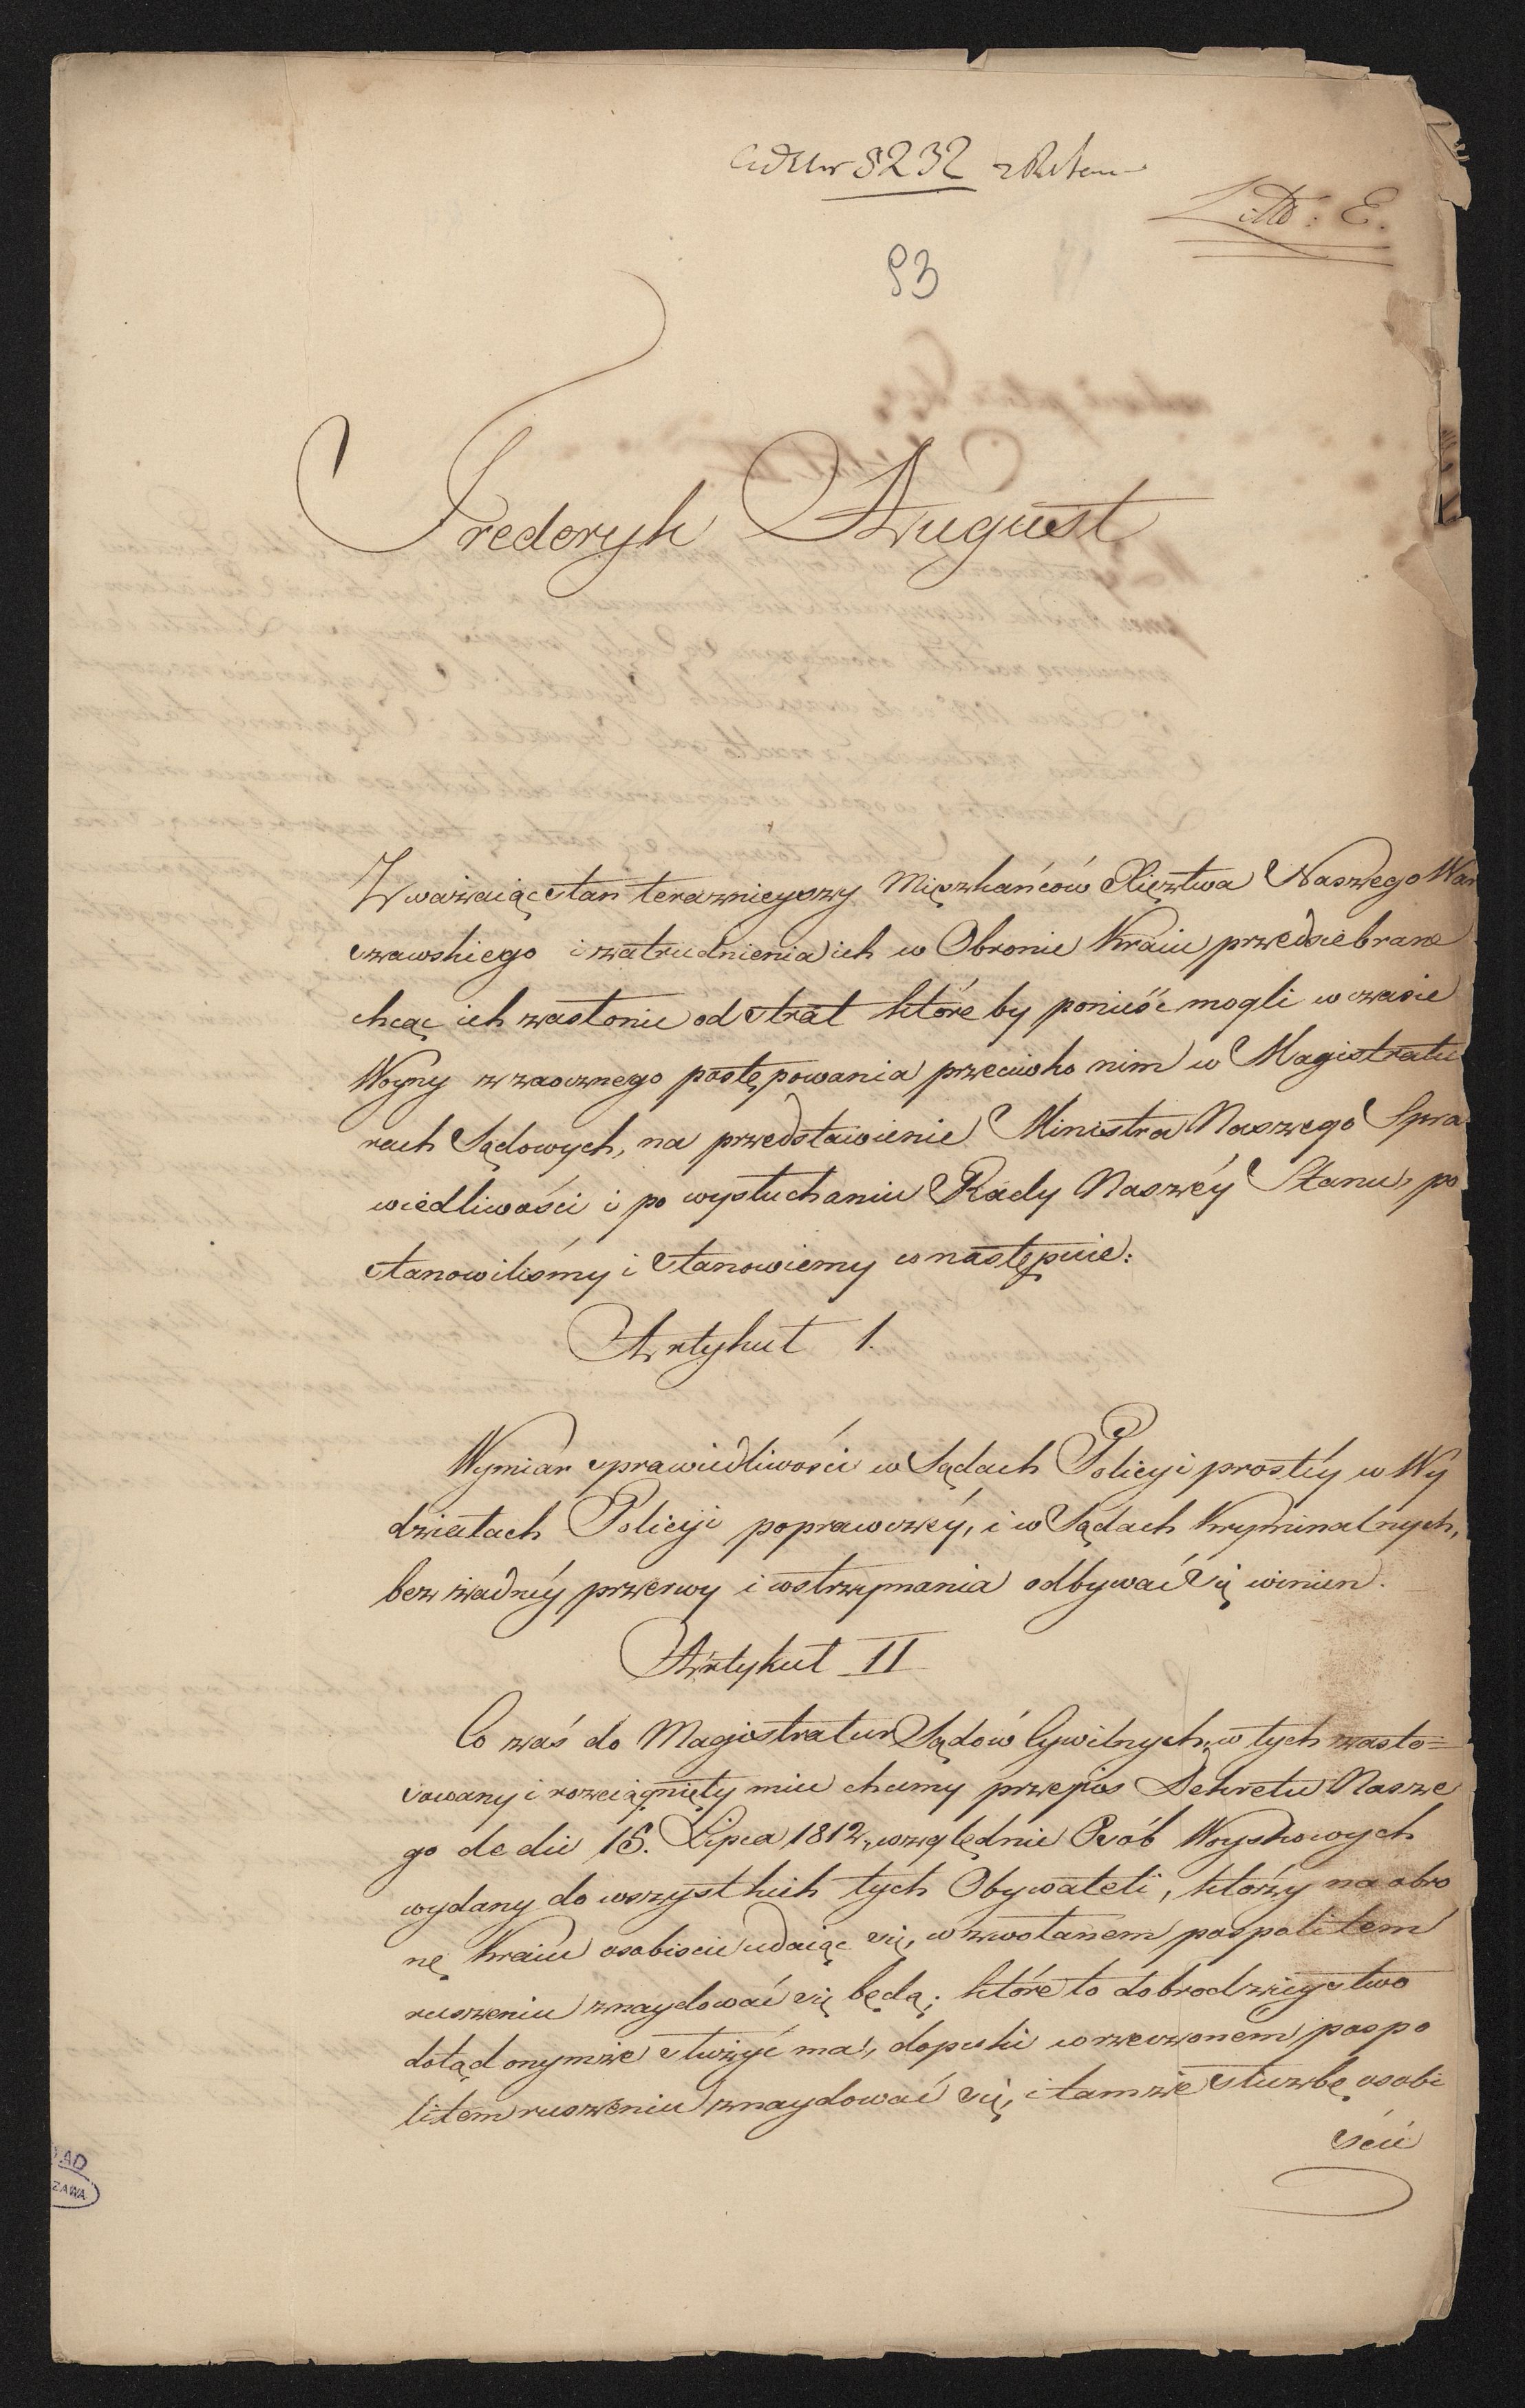 8232
Litt: E.
93
Frederyk August
Zważaiąc Stan teraznieyszy Mięszkańców Xięztwa Naszego War
szawskiego i zatrudnienia ich w Obronie Kraiu przedsiebrane
chcąc ich zasłonić od Strat które by ponieść mogli w czasie
Woyny z zaocznego postępowania przeciwko nim w Magistratu
rach Sądowych, na przedstawienie Ministra Naszego Spra
wiedliwości i po wysłuchaniu Rady Naszéy Stanu, po
stanowiliśmy i Stanowiemy co następuie:
Artykuł 1.
Wymiar sprawiedliwości w Sądach Policyi prostéy w Wy
działach Policyi poprawczéy, i w Sądach Kryminalnych,
bez żadnéy przerwy i wstrzymania odbywać się winien.
Artykuł II
Co zaś do Magistratur Sądów Cywilnych, w tych zasto=
sowany i rozciągnięty mieć chcemy przepis Dekretu Nasze
go de die 18. Lipca 1812, względnie Osób Woyskowych
wydany do wszystkich tych Obywateli, którzy na obro
nę Kraiu osobiscie udaiąc się, w zwołanem pospolitem
ruszeniu znaydować się będą; które to dobrodzieystwo
dotąd onymże służyć ma, dopuki w rzeczonem pospo
litem ruszeniu znaydować się, i tamże służbę osobi
ście
AD
ZAWA